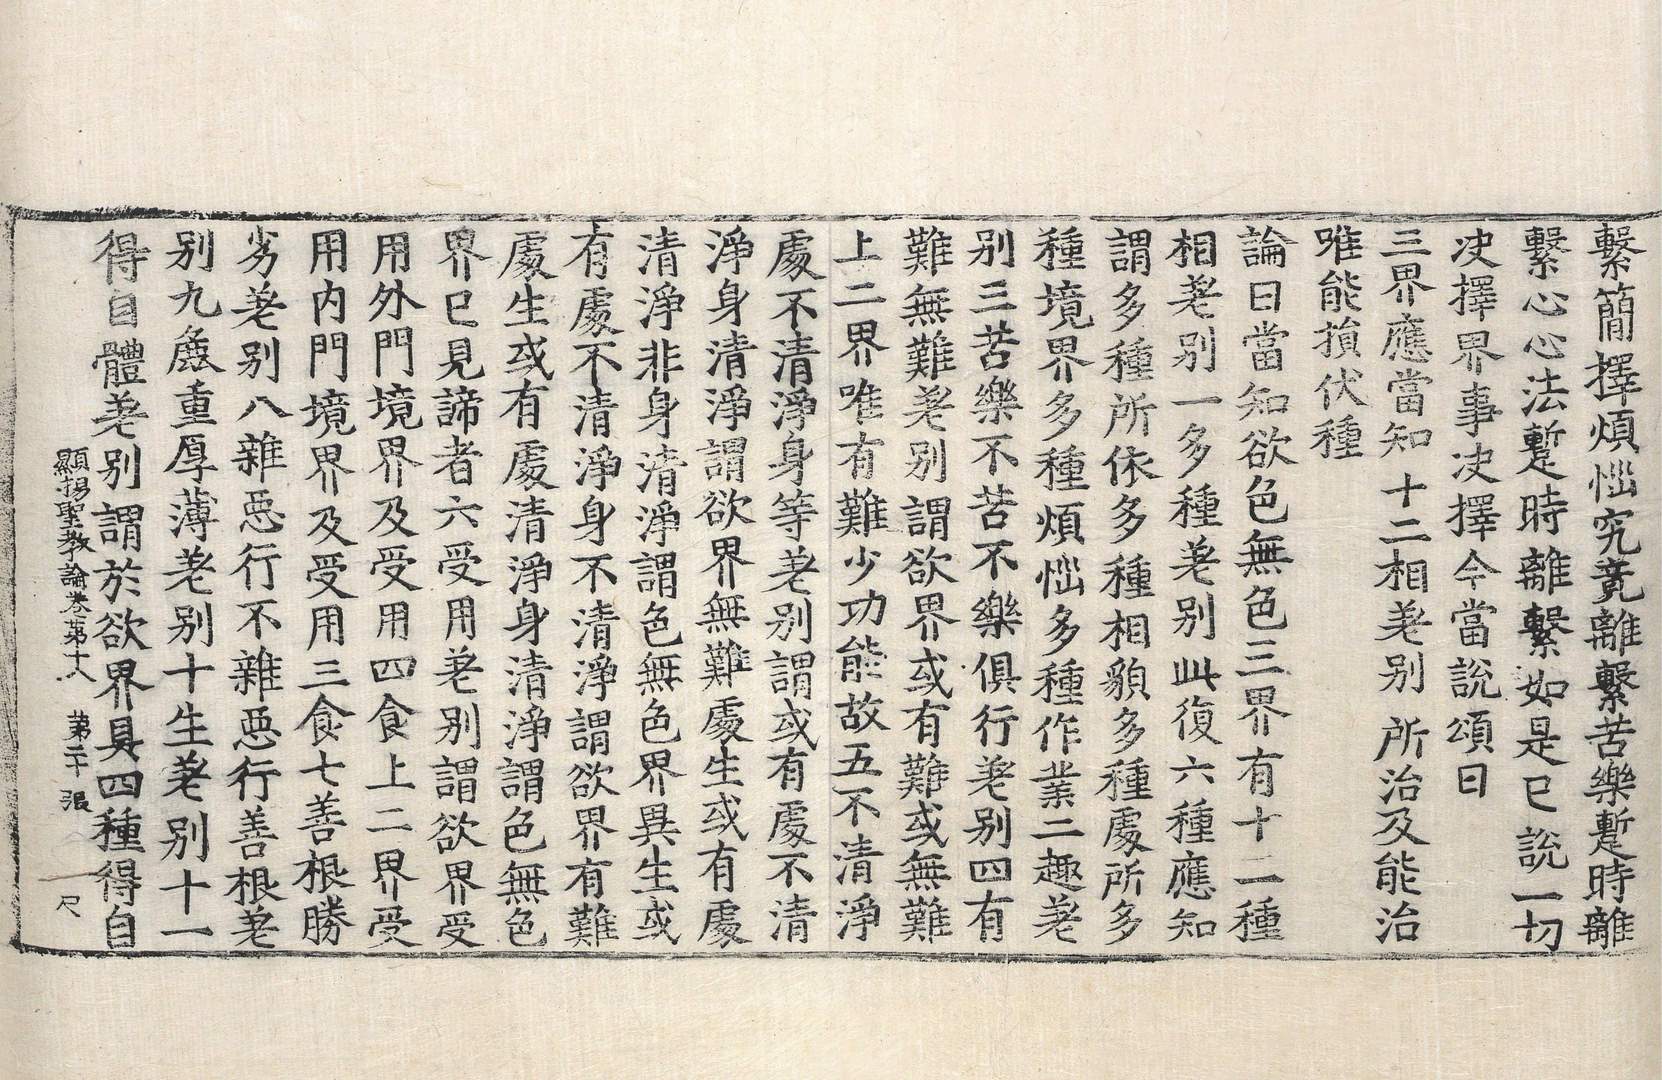 繫簡擇煩惱究竟離繫苦樂蹔時離
繫心心法蹔時離繫如是已說一切
决擇界事决擇今當說頌曰
三界應當知 十二相差别 所治及能治
唯能損伏種
論曰當知欲色無色三界有十二種
相差别一多種差别此復六種應知
謂多種所依多種相貌多種處所多
種境界多種煩惱多種作業二趣差
别三苦樂不苦不樂俱行差别四有
難無難差别謂欲界或有難或無難
上二界唯有難少功能故五不清淨
處不清淨身等差别謂或有處不清
淨身清淨謂欲界無難處生或有處
清淨非身清淨謂色無色界異生或
有處不清淨身不清淨謂欲界有難
處生或有處清淨身清淨謂色無色
界已見諦者六受用差别謂欲界受
用外門境界及受用四食上二界受
用内門境界及受用三食七善根勝
劣差别八雜惡行不雜惡行善根差
别九麁重厚薄差别十生差别十一
得自體差别謂於欲界具四種得自
顯揚聖教論卷第十八 第二十張 尺